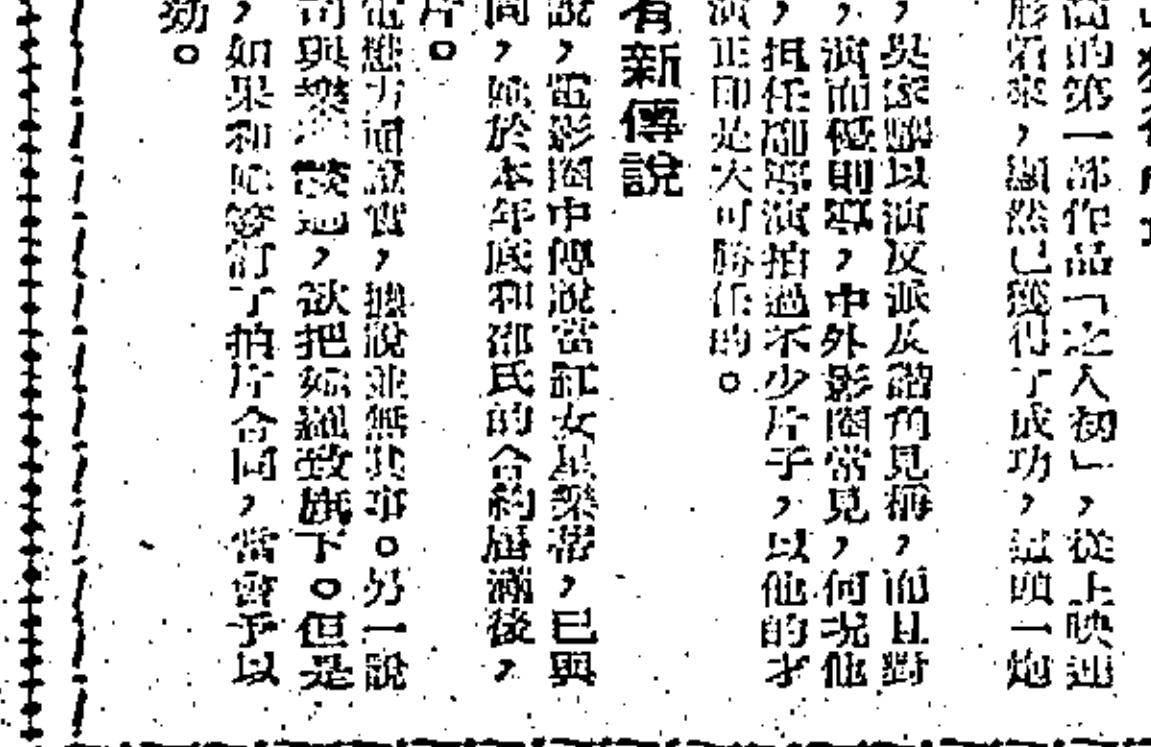 商的第一部作品「之人初」,從上映連
形看來,顯然已獲得了成功,這頭一炮
,吳家驤以演反派反諧角見稱,而且對
,演而優則導,中外影圈常見,何況他
,担任副導演拍過不少片子,以他的才
演正印是大可勝任的。
有新傳說
說,電影圈中傳說當紅女星樂蒂,已與
間,她於本年底和邵氏的合約屆滿後,
片。
電懋方面證實,據說並無其事。另一說
司與樂 談過,欲把她羅致旗下。但是
,如果和她簽訂了拍片合同,當會予以